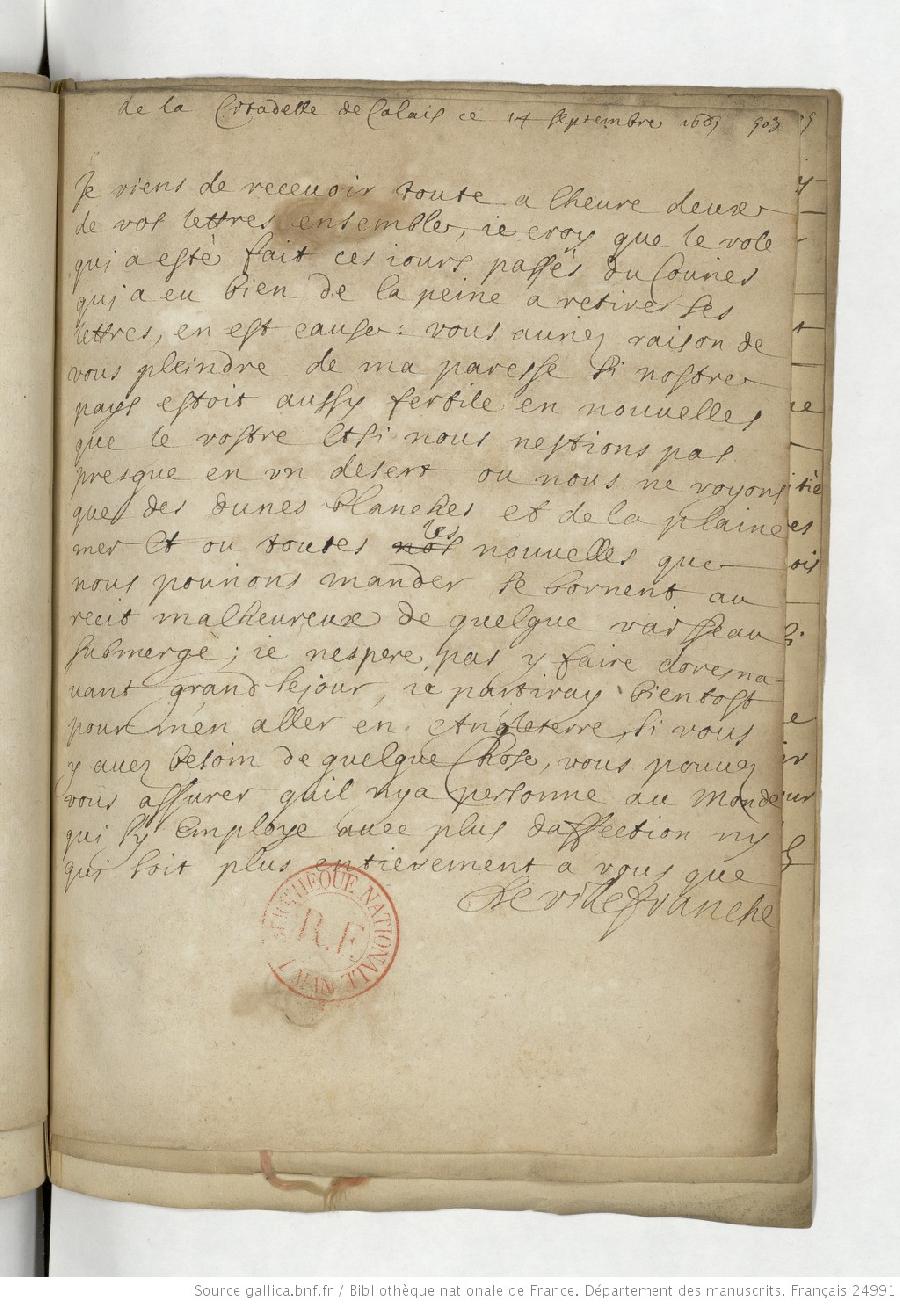 de la Citadelle de Calais ce 14 septembre 1665 503
Je viens de receuoir toute a lheure deux
de vos lettres ensemble, ie croy que le vole
qui a estè fait ces iours passës du Courier
qui a eu bien de la peine a retirer ses
lettres, en est cause: vous auriez raison de
vous pleindre de ma paresse si nostre
pays estoit aussy fertile en nouuelles
que le vostre et si nous nestions pas
presque en vn desert ou nous ne voyons
que des dunes blanches et de la plaine
mer et ou toutes les nouuelles que
nous pouuons mander se bornent au
recit malheureux de quelque vaisseau
submergé; ie nespere pas y faire doresna-
uant grand seiour, ie partiray bientost
pour men aller en Angleterre, si vous
y auez besoin de quelque chose, vous pouuez
vous assurer quil ny a personne au monde
qui sy employe auec plus daffection ny
qui soit plus entierement a vous que
De villefranche
BIBLIOTHÈQUE NATIONALE
R.F.
MAN
Source gallica.bnf.fr / Bibliothèque nationale de France. Département des manuscrits. Français 24991